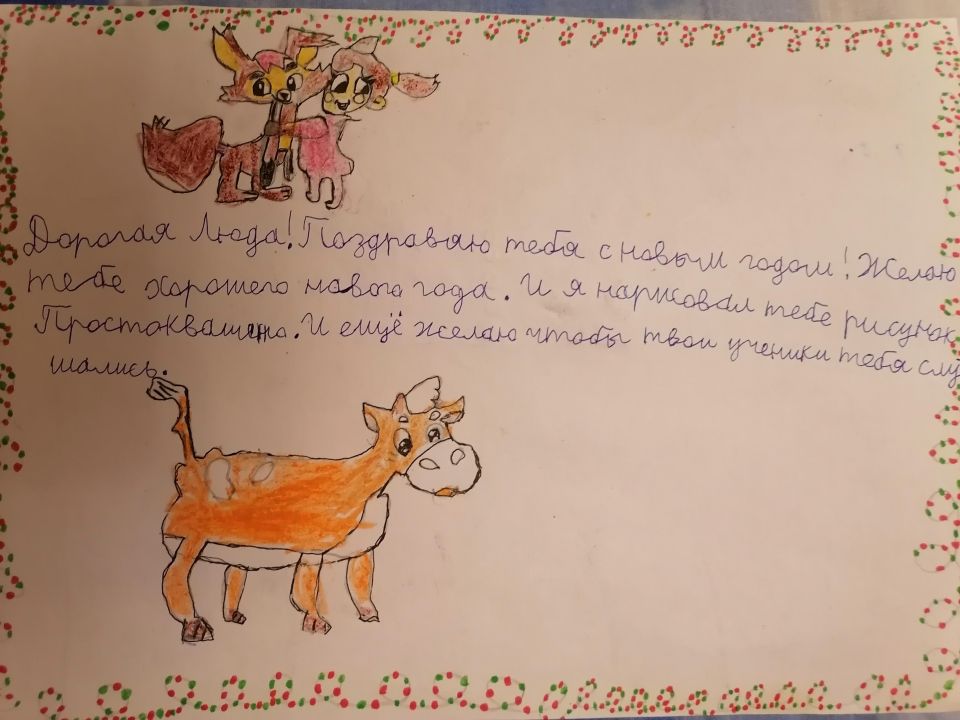 Дорогая Люда! Поздравяю тебя с новым годом! Желаю
тебе хорошего новога года. И я нарисовал тебе рисунок
Простоквашино. И ещё желаю чтобы твои ученики тебя слу
шались.